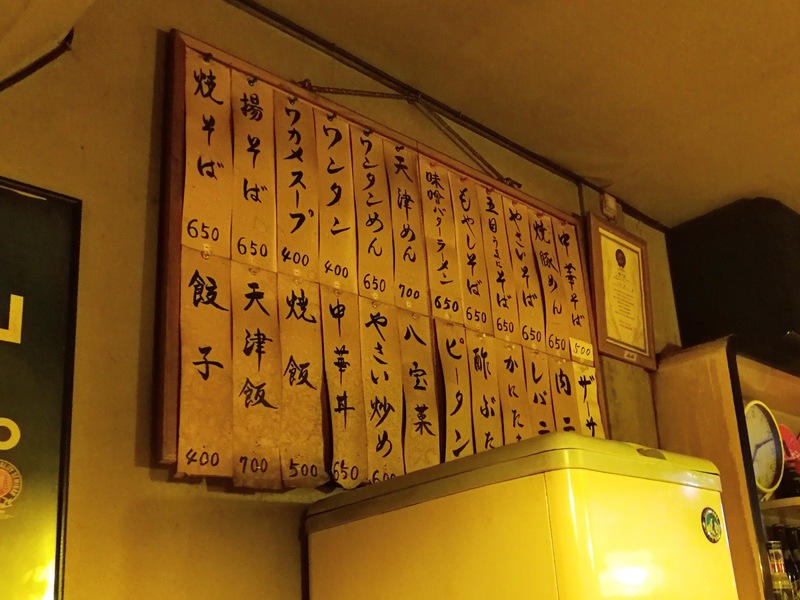 中華そば 500
焼豚めん 650
やさいそば 650
五目うまにそば 650
もやしそば 650
味噌バターラーメン 650
天津めん 700
ワンタンめん 650
ワンタン 400
ワカメスープ 400
揚そば 650
焼そば 650
ザーサ
肉ニ
レバニ
かにたま
酢ぶた
ピータン
八宝菜
やさい炒め 600
中華丼 650
焼飯 500
天津飯 700
餃子 400